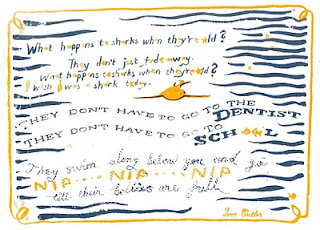 What happens to sharks when they're old?
They don't just fade away.
What happens to sharks when they're old?
I wish I was a shark today.
THEY DON'T HAVE TO GO TO THE DENTIST
THEY DON'T HAVE TO GO TO SCHOOL
They swim along below you and go
NIP NIP NIP
till their bellies are full.
Ivor Cutler